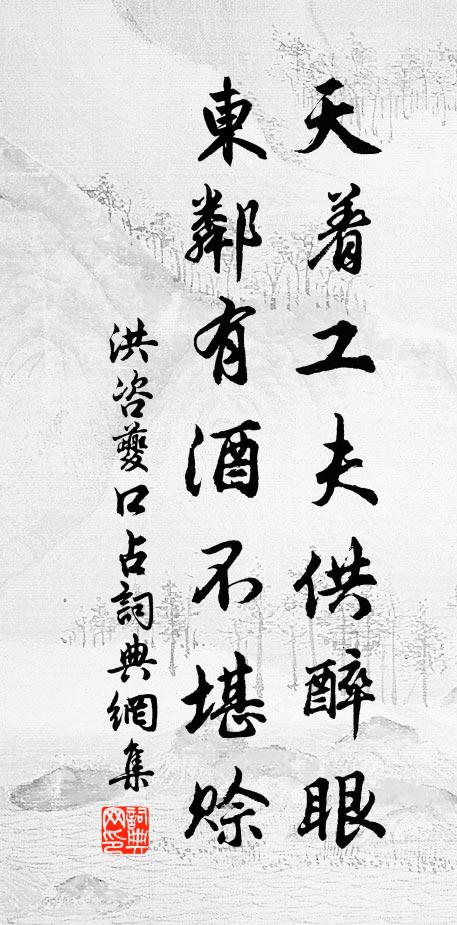 天着工夫供醉眼
東鄰有酒不堪賒
洪咨夔口占詞典網集
詞典網印